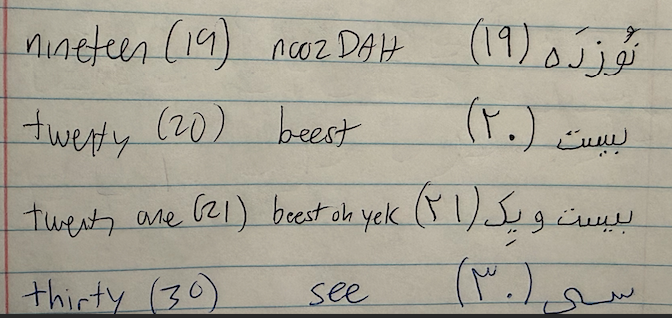 nineteen (19) nooz DAH (۱۹) نُوزدَه
twenty (20) beest (۲۰) بیست
twenty one (21) beest oh yek (۲۱) بیست و یِک
thirty (30) see (۳۰) سی